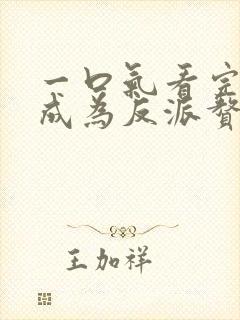 一口氣看完
成為反派贅
王加祥